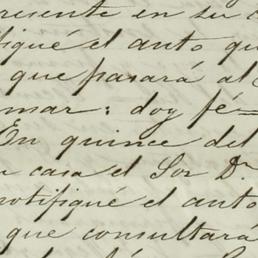 presente en su c
ifiqué el auto qu
que pasará al
mar: doy fé=
En quince del
u casa el Sor Dr.
notifiqué el auto
que consultará